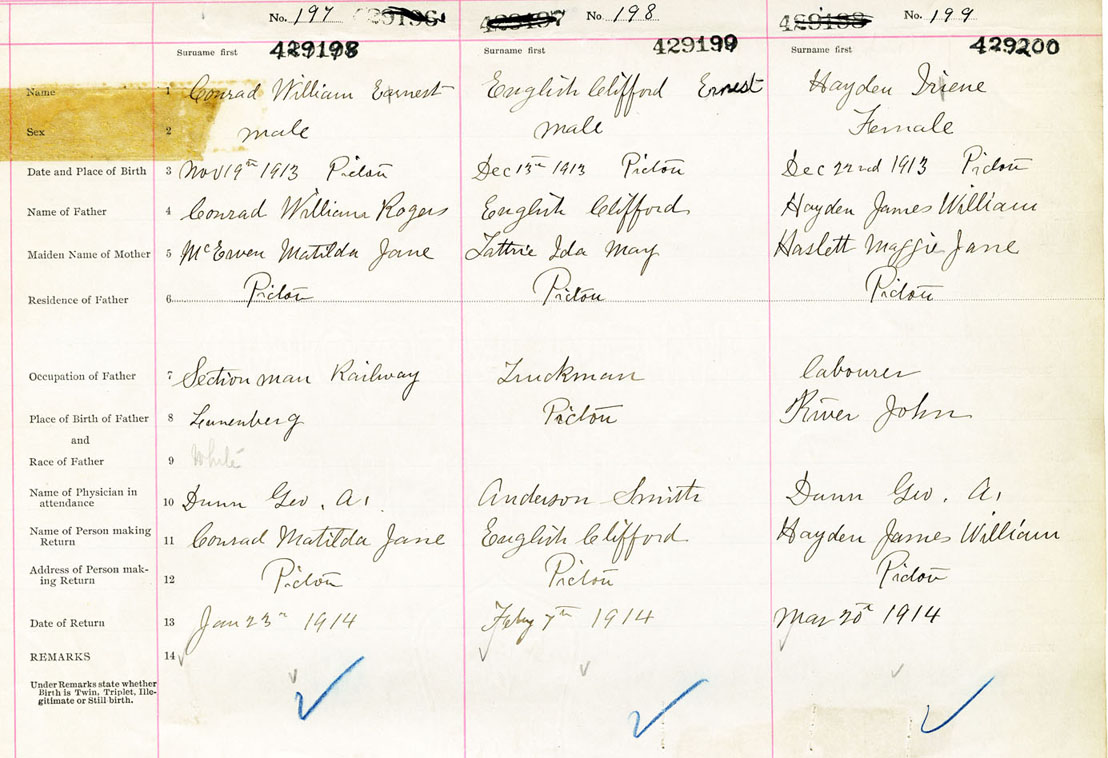 No. 197 429196. 429197 No. 198 429198 No. 199
Surname first 429198 Surname first 429199 Surname first 429200
Name 1 Conrad William Earnest English Clifford Ernest Hayden Iriene
Sex 2 male male Female
Date and Place of Birth 3 Nov 19th 1913 Pictou Dec 15th 1913 Pictou Dec 22nd 1913 Pictou
Name of Father 4 Conrad William Rogers English Clifford Hayden James William
Maiden Name of Mother 5 McEwen Matilda Jane Tattrie Ida May Haslett Maggie Jane
Residence of Father 6 Pictou Pictou Pictou
Occupation of Father 7 Section man Railway Truckman labourer
Place of Birth of Father 8 Lunenberg Pictou River John
and
Race of Father 9 White
Name of Physician in
attendance 10 Dunn Geo. A. Anderson Smith Dunn Geo. A.
Name of Person making
Return 11 Conrad Matilda Jane English Clifford Hayden James William
Address of Person mak-
ing Return 12 Pictou Pictou Pictou
Date of Return 13 Jan 23rd 1914 Feby 7th 1914 Mar 20th 1914
REMARKS 14
Under Remarks state whether
Birth is Twin, Triplet, Ille-
gitimate or Still birth.